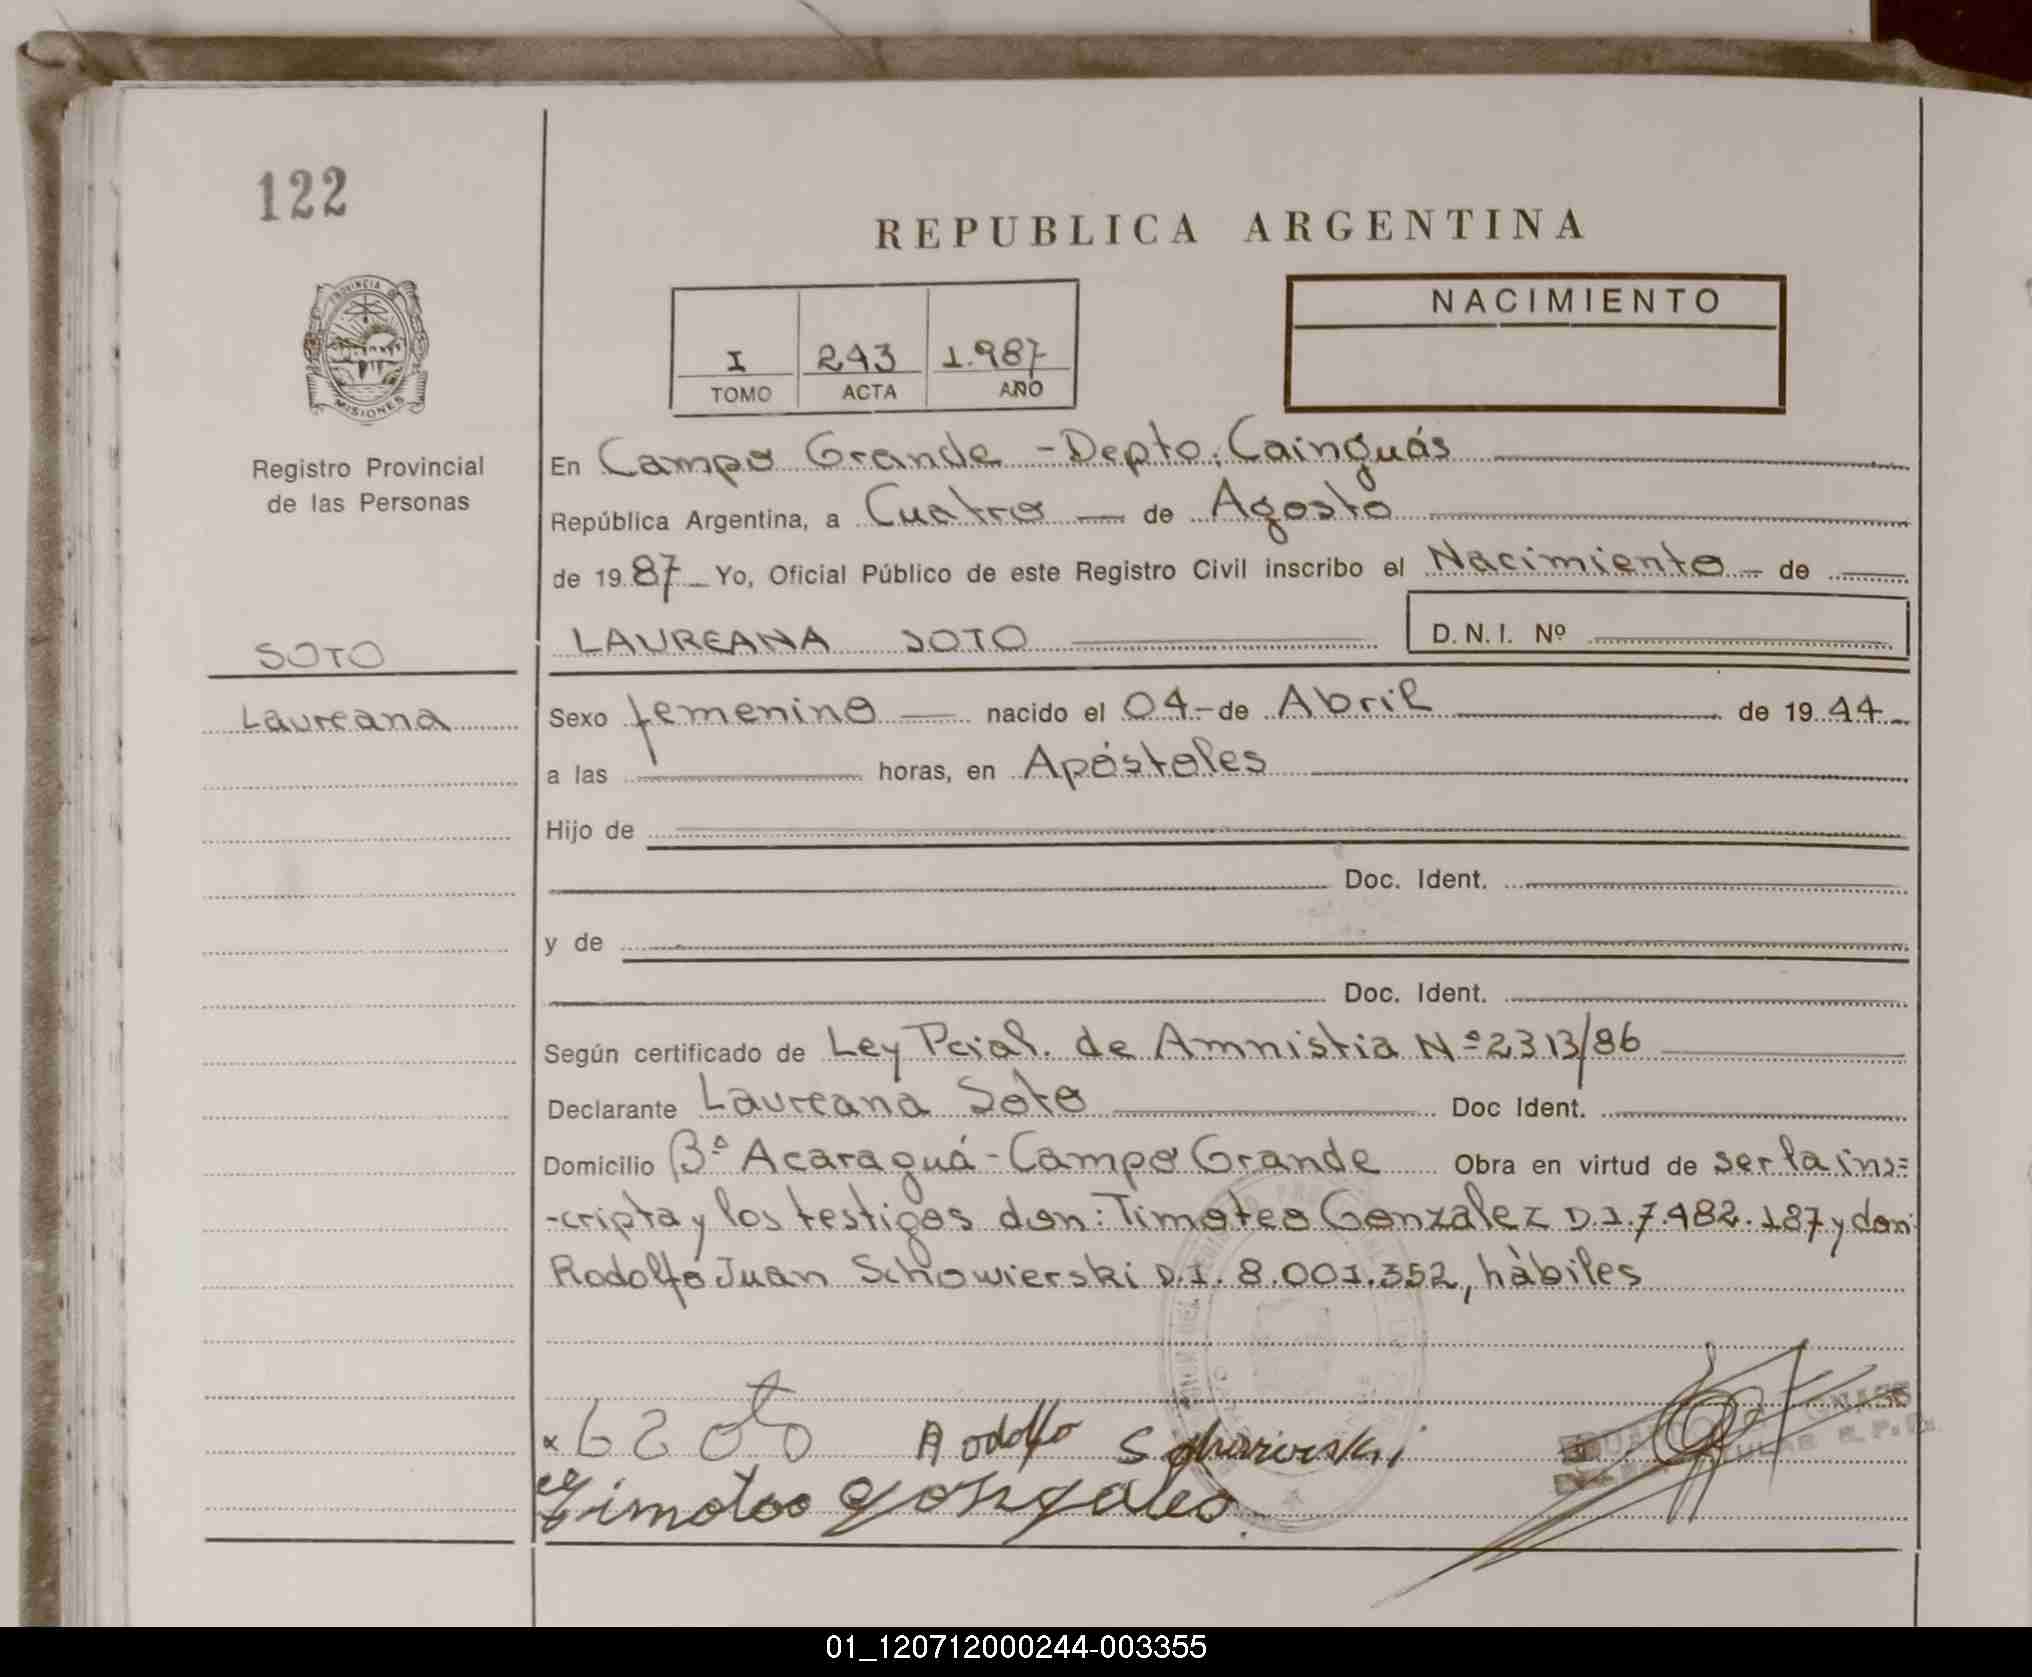 122
REPUBLICA ARGENTINA
NACIMIENTO
I 243 1.987
TOMO ACTA AÑO
PROVINCIA DE MISIONES
Registro Provincial
de las Personas
En Campo Grande - Depto. Cainguás
República Argentina, a Cuatro — de Agosto
de 1987 Yo, Oficial Público de este Registro Civil inscribo el Nacimiento — de
LAUREANA SOTO D.N.I. Nº
SOTO
Laureana
Sexo femenino — nacido el 04 - de Abril de 1944
a las horas, en Apóstoles
Hijo de
Doc. Ident.
y de
Doc. Ident.
Según certificado de Ley Pcial. de Amnistia Nº 2313/86
Declarante Laureana Soto Doc Ident.
Domicilio Bº Acaraguá - Campo Grande Obra en virtud de ser la ins=
-cripta y los testigos don: Timoteo Gonzalez D.I. 7.482.187 y don:
Rodolfo Juan Schowierski D.I. 8.001.352, hàbiles
Rodolfo
Timoteo gonzales
01_120712000244-003355